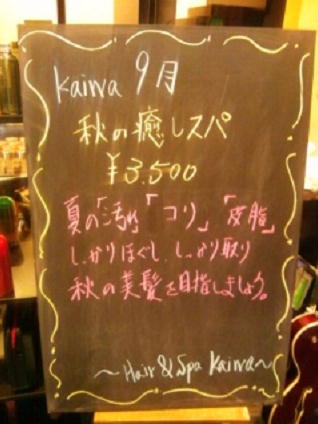 Kaiwa 9月
秋の癒しスパ
¥3.500
夏の「汚れ」「コリ」「皮脂」
しっかりほぐし、しっかり取り
秋の美髪を目指しましょう。
〜Hair & Spa Kaiwa〜